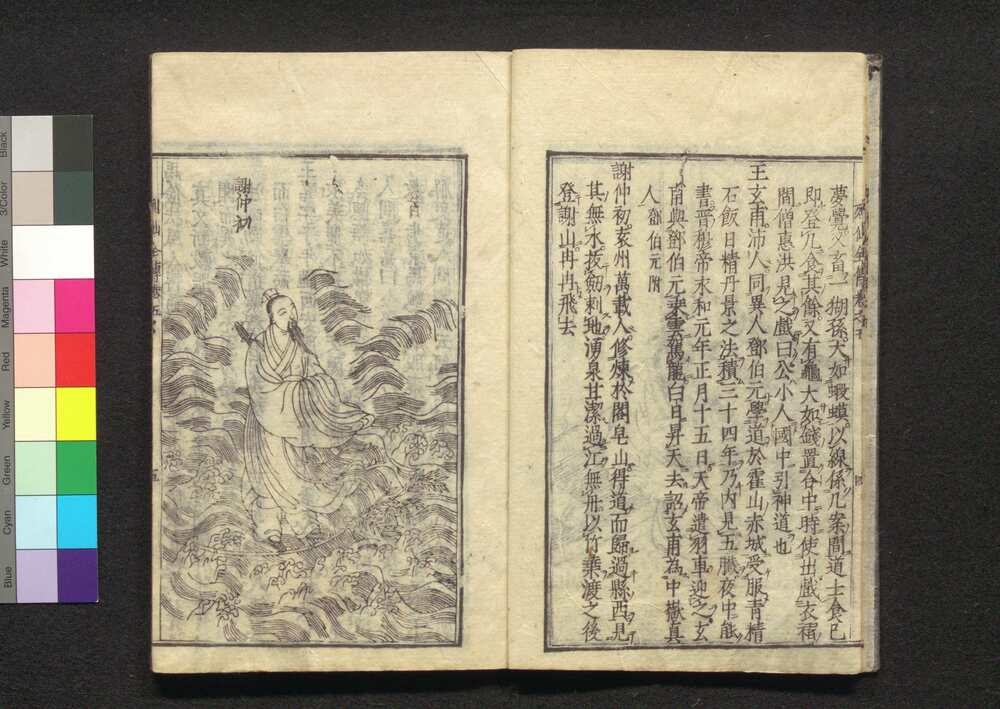 夢覺又畜一猢猻大如蝦蟆以線係几案間道士食已
即登几食其餘又有龜大如錢置合中時使出戲衣褶
間僧惠洪見之戲曰公小人國中引神道也
王玄甫沛人同異人鄧伯元學道於霍山赤城受服青精
石飯日精丹景之法積三十四年乃內見五臟夜中能
書晋穆帝永和元年正月十五日天帝遣羽車迎之玄
甫與鄧伯元乘雲駕龍白日昇天去詔玄甫為中嶽真
人鄧伯元附
謝仲初袁州萬載人修煉於閣皂山得道而歸過縣西見
其無水抜劒刺地湧泉甘潔過江無舟以竹乘渡之後
登謝山冉冉飛去
四
謝仲初
五
Black
3/Color
White
Magenta
Red
Yellow
Green
Cyan
Blue